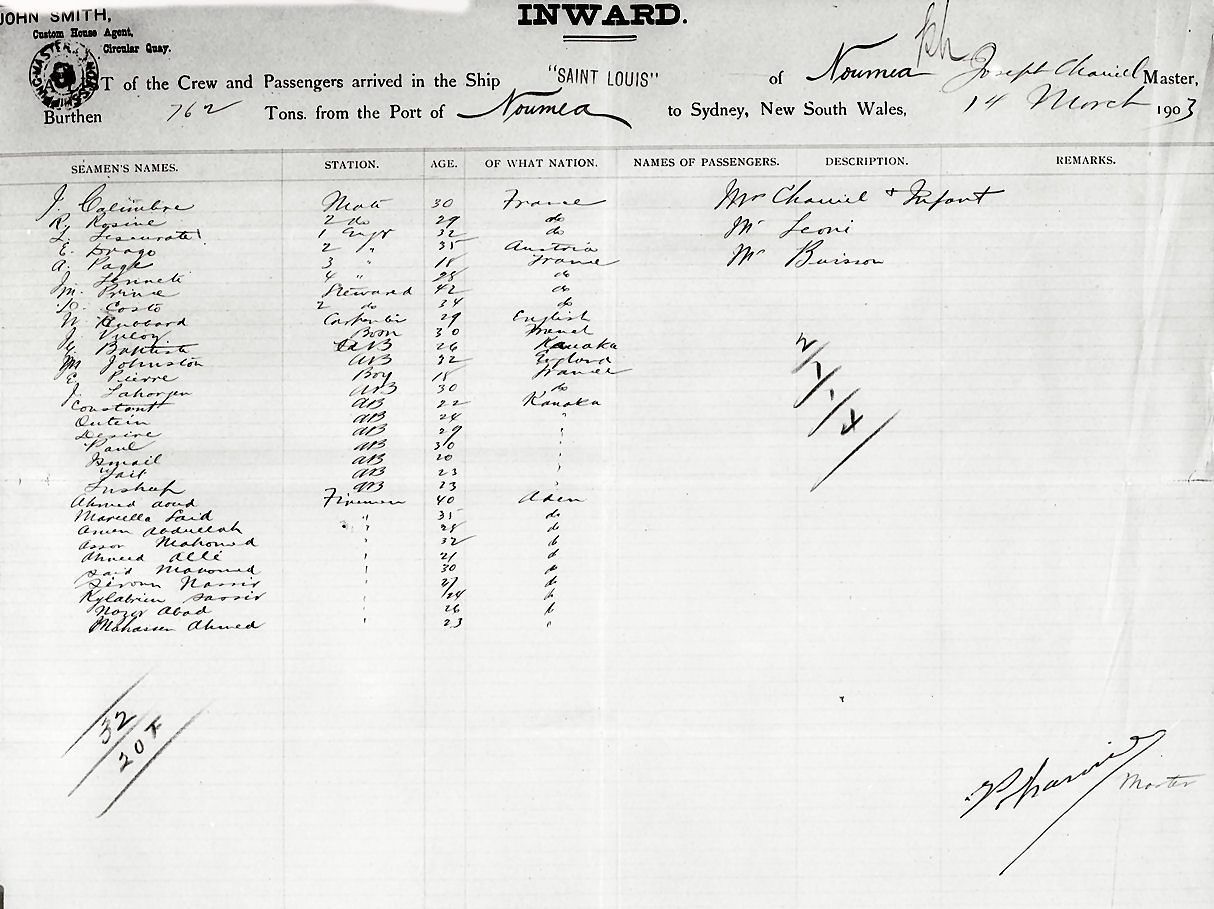 JOHN SMITH,
Custom House Agent,
Circular Quay.
INWARD.
T of the Crew and Passengers arrived in the Ship "SAINT LOUIS" of Noumea Joseph Master,
Burthen 762 Tons. from the Port of Noumea to Sydney, New South Wales, 14 March 1903
SEAMEN'S NAMES. STATION. AGE. OF WHAT NATION. NAMES OF PASSENGERS. DESCRIPTION. REMARKS.
J. Calimbre Mate 30 France Mrs Chaviel + Infant
R. Rosine 2 do 29 do Mr Leoni
L. 1 Engr 32 do
E. Drago 2 " 35 Austria Mr Buisson
A. Page 3 " 18 France
J. 4 " 28 do
M. Prince Steward 42 do
Costo 2 do 34 do
W. Hubbard Carpenter 29 English
J. Bosn 30 French
Baptiste AB 26 Kanaka
M. Johnston AB 22 England
E. Pierre Boy 18 France
J. AB 30 do
Constant AB 22 Kanaka
AB 24 "
Desire AB 29 "
Paul AB 30 "
Ismail AB 20 "
AB 23 "
AB 23 "
Ahmed Fireman 40 Aden
Marcella Said " 35 do
Amen Abdullah " 28 do
Assor Mahomed " 32 do
Ahmed Alli " 21 do
Said Mahomed " 30 do
Nassir " 27 do
" 24 do
Abad " 26 do
Mahassen Ahmed " 23 "
2/1/1/4
32
20
Master